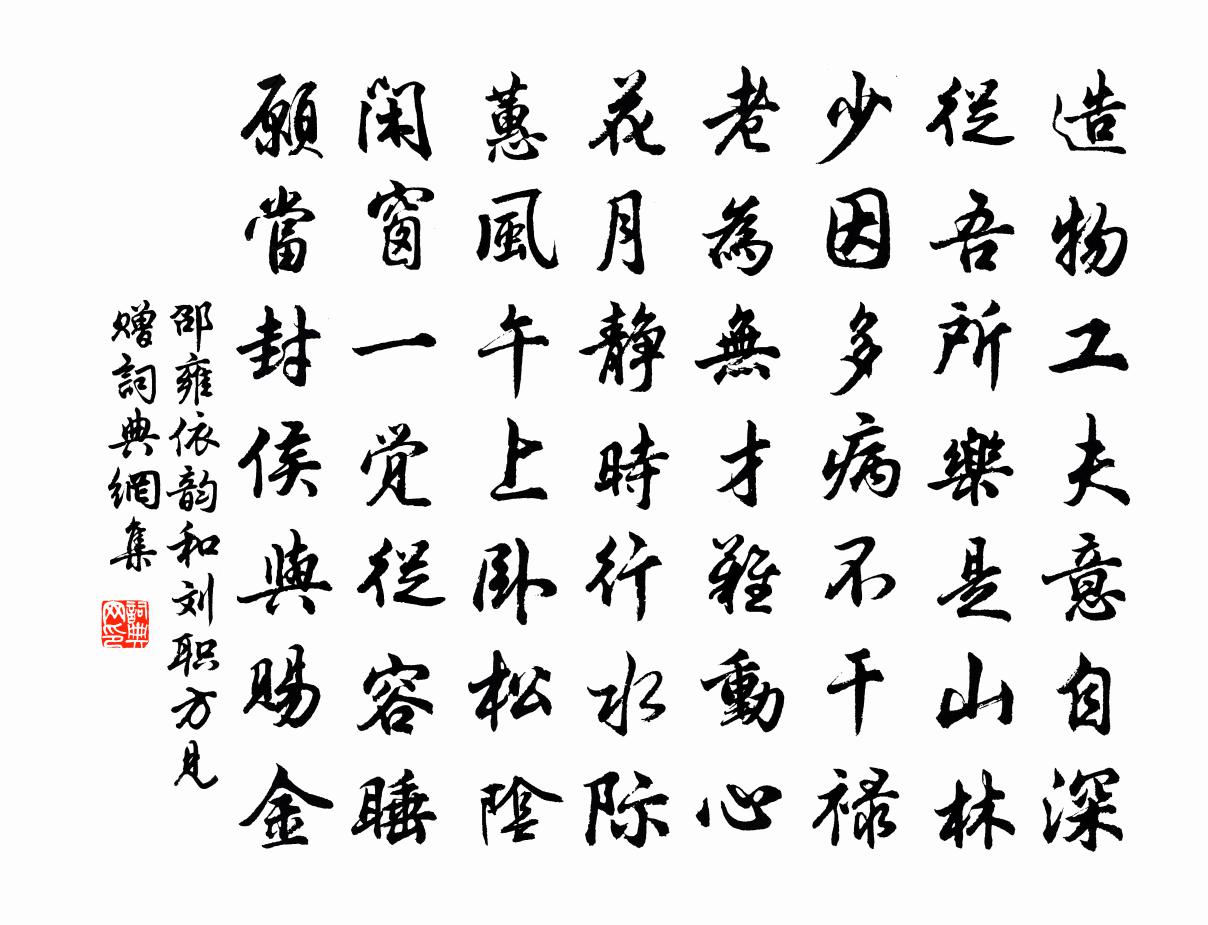 造物工夫意自深
從吾所樂是山林
少因多病不干禄
老為無才難動心
花月静時行水際
蕙風午上卧松陰
閑窗一覺從容睡
願當封侯與賜金
邵雍依韵和刘职方見
贈詞典網集
詞典网印